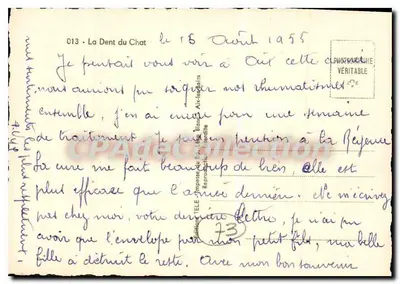 013 - La Dent du Chat
le 16 Août 1955
PHOTOGRAPHIE
VÉRITABLE
Je pensais vous voir à Aix cette année
nous aurions pu soigner nos rhumatismes
ensemble, j'en ai encore pour une semaine
de traitement. Je suis en pension à la Régence
La cure me fait beaucoup de bien, elle est
plus efficace que l'année dernière. Ne m'écrivez
pas chez moi, votre dernière lettre, je n'ai pu
avoir que l'enveloppe par mon petit fils, ma belle
fille a détruit le reste. Avec mon bon souvenir
mes sentiments les plus respectueux
73
CPADeCollection.com